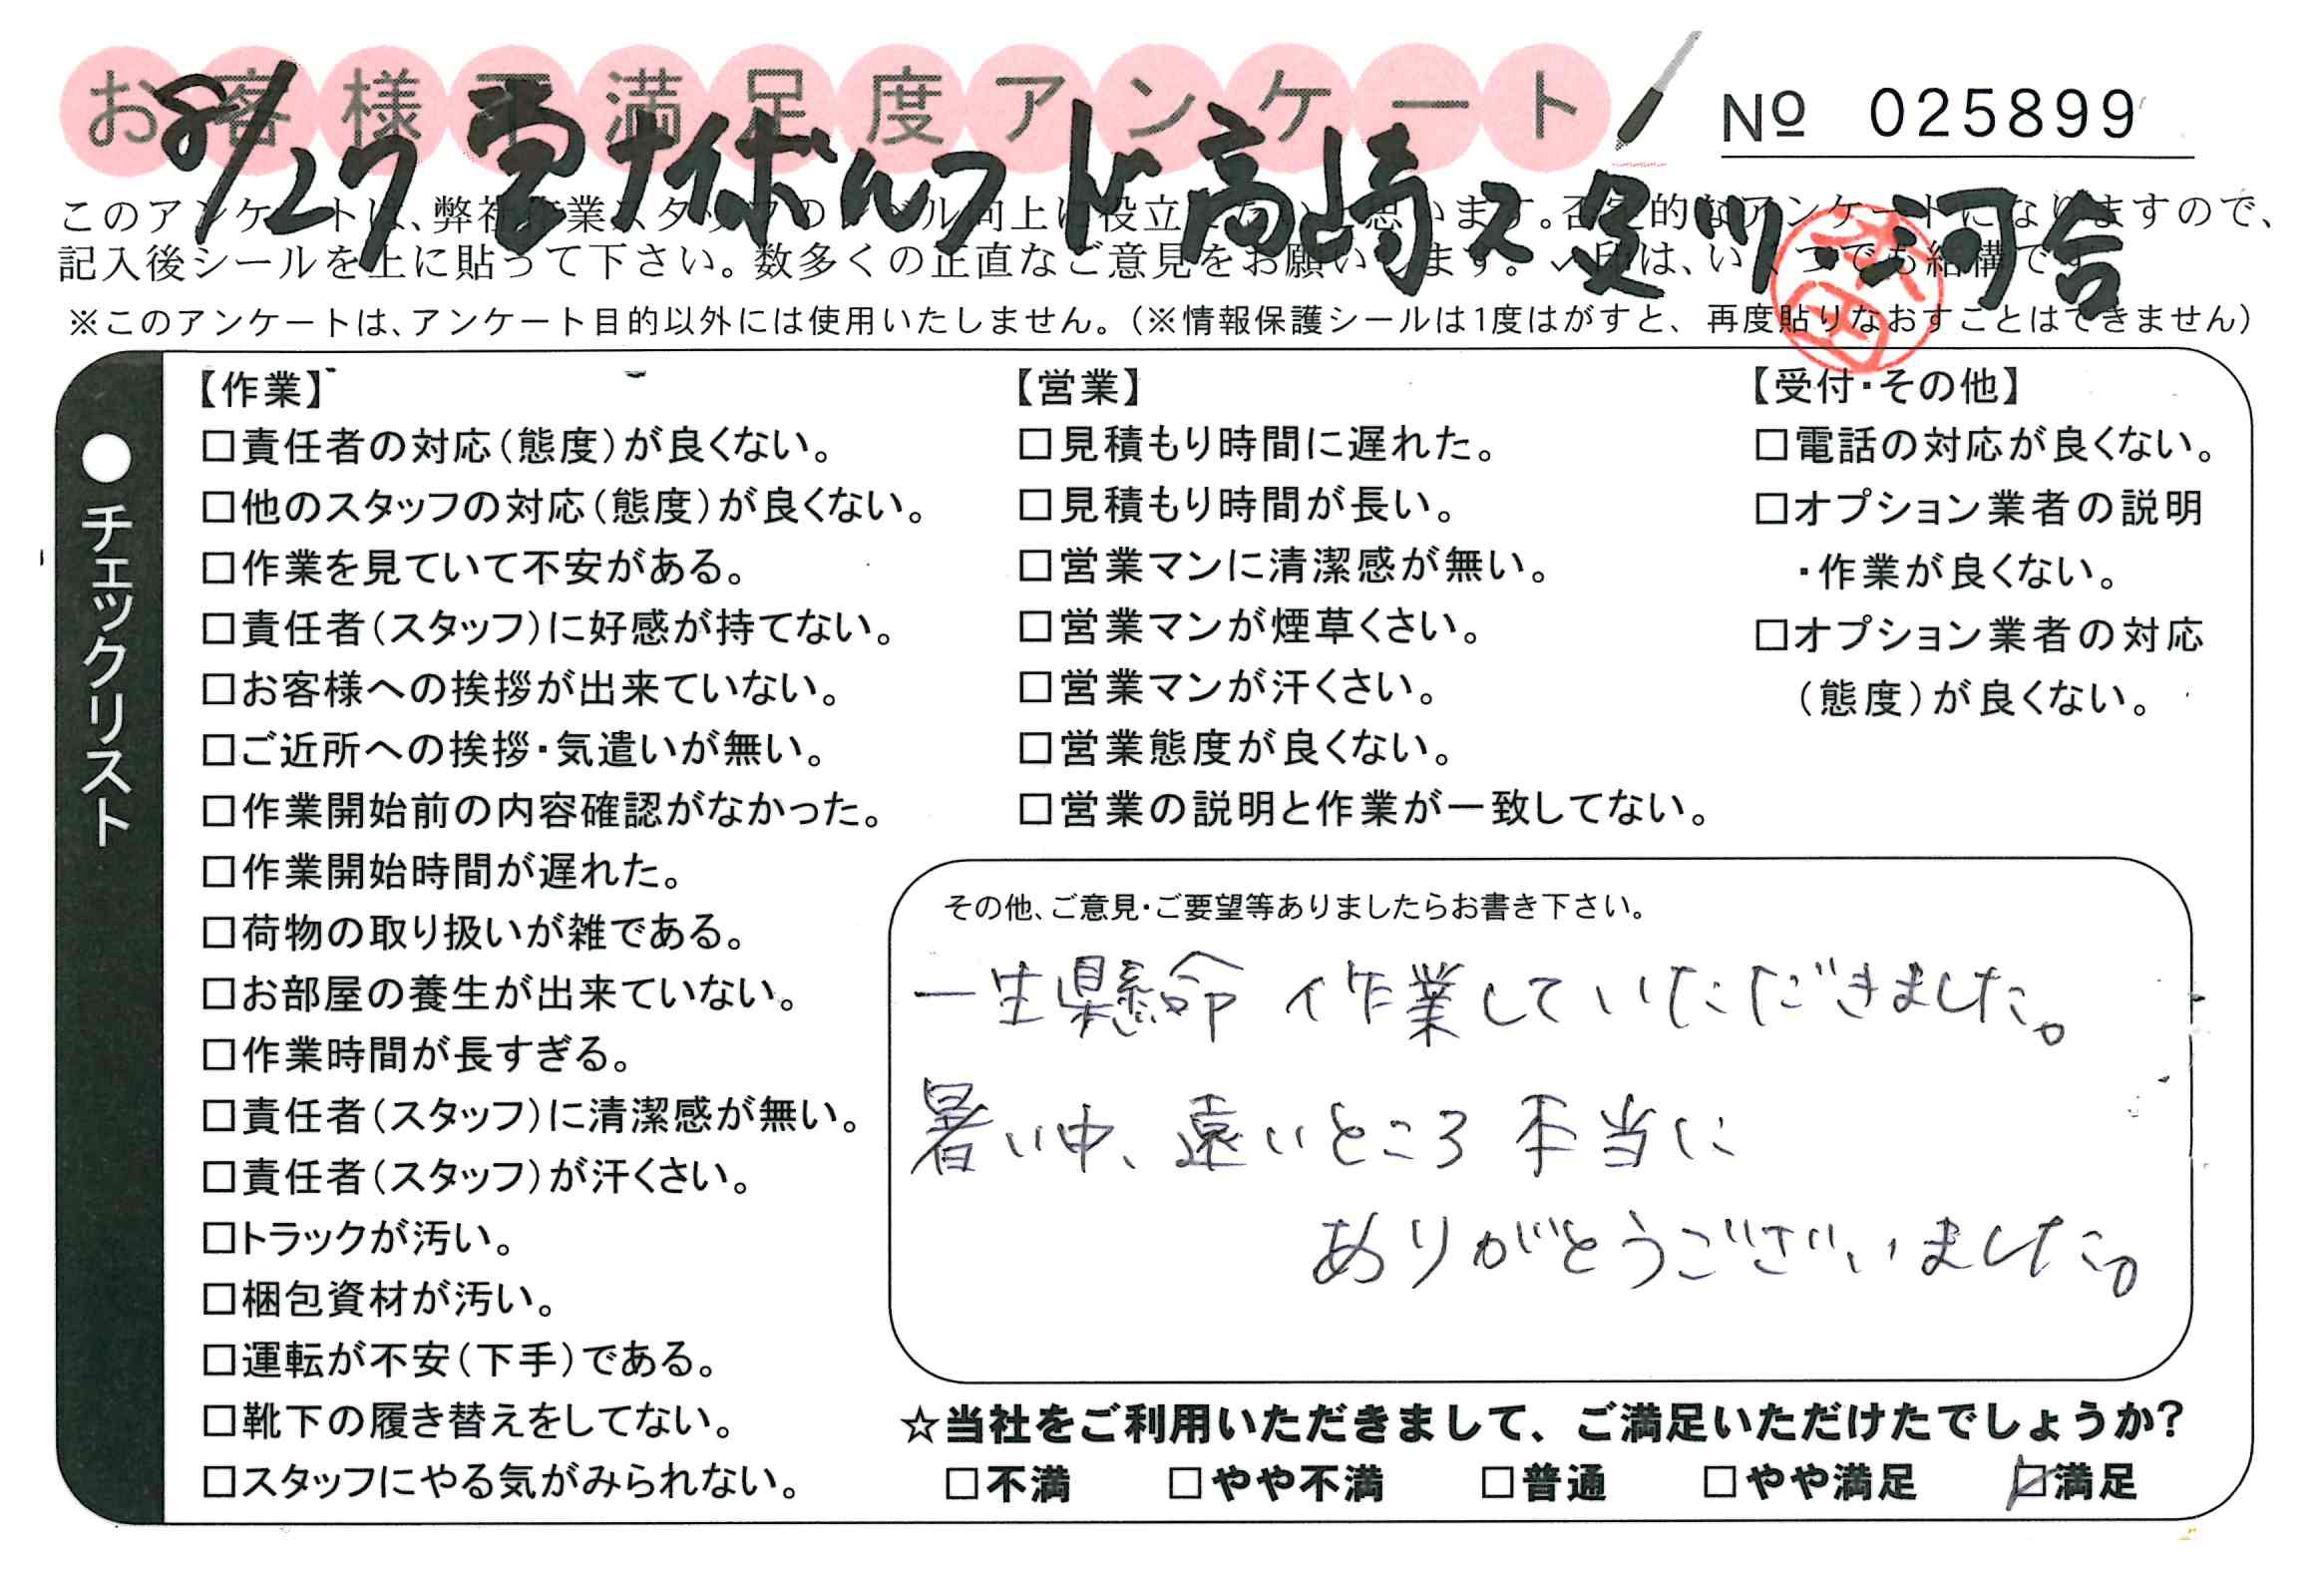 お客様不満足度アンケート
№ 025899
8/27
高崎
河合
このアンケートは、弊社作業スタッフのレベル向上に役立てたいと思います。否定的なアンケートになりますので、
記入後シールを上に貼って下さい。数多くの正直なご意見をお願いします。✓印は、いくつでも結構です
※このアンケートは、アンケート目的以外には使用いたしません。（※情報保護シールは1度はがすと、再度貼りなおすことはできません）
●チェックリスト
【作業】
□責任者の対応（態度）が良くない。
□他のスタッフの対応（態度）が良くない。
□作業を見ていて不安がある。
□責任者（スタッフ）に好感が持てない。
□お客様への挨拶が出来ていない。
□ご近所への挨拶・気遣いが無い。
□作業開始前の内容確認がなかった。
□作業開始時間が遅れた。
□荷物の取り扱いが雑である。
□お部屋の養生が出来ていない。
□作業時間が長すぎる。
□責任者（スタッフ）に清潔感が無い。
□責任者（スタッフ）が汗くさい。
□トラックが汚い。
□梱包資材が汚い。
□運転が不安（下手）である。
□靴下の履き替えをしてない。
□スタッフにやる気がみられない。
【営業】
□見積もり時間に遅れた。
□見積もり時間が長い。
□営業マンに清潔感が無い。
□営業マンが煙草くさい。
□営業マンが汗くさい。
□営業態度が良くない。
□営業の説明と作業が一致してない。
【受付・その他】
□電話の対応が良くない。
□オプション業者の説明
・作業が良くない。
□オプション業者の対応
（態度）が良くない。
その他、ご意見・ご要望等ありましたらお書き下さい。
一生懸命 作業していただきました。
暑い中、遠いところ 本当に
ありがとうございました。
☆当社をご利用いただきまして、ご満足いただけたでしょうか?
□不満 □やや不満 □普通 □やや満足 ☑満足